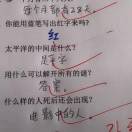 每个月都有28天
你能用蓝笔写出红字来吗?
红
太平洋的中间是什么?
是平字
用什么可以解开所有的谜?
答案。
什么样的人死后还会出现?
电影中的人